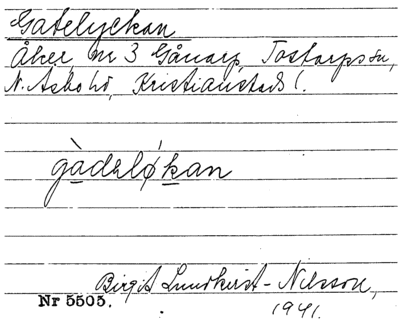 Gatelyckan
Åker nr 3 Gånarp, Tåstarps sn,
N. Åsbo hd, Kristianstads l.
gàdəlỳkan
Birgit Lundkvist-Nilsson,
Nr 5505. 1941.